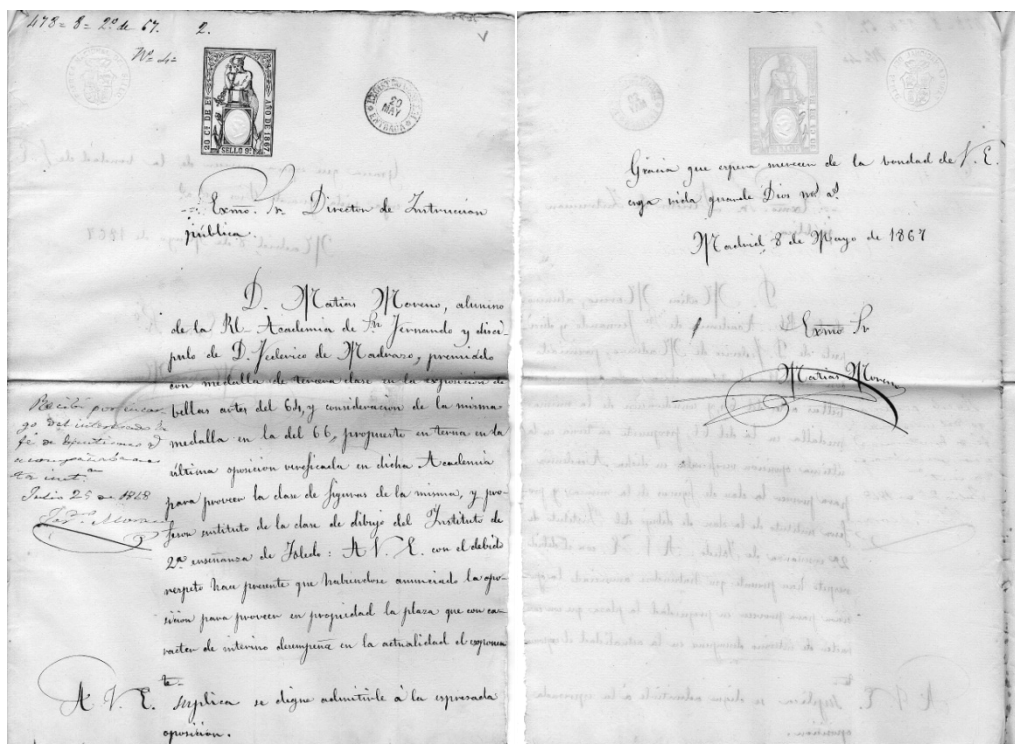 478=8=2º de 67. 2.
Nº 42
20 Cs DE Eº
AÑO DE 1867
SELLO 9º
20
MAY
ENTRADA
Exmo. Sr. Director de Intrucción
pública.
D. Matias Moreno, alumno
de la Rl. Academia de Sn. Fernando y disci-
pulo de D. Federico de Madrazo, premiado
con medalla de tercera clase en la exposicion de
bellas artes del 64, y consideracion de la misma
medalla en la del 66, propuesto en terna en la
última oposicion verificada en dicha Academia
para proveer la clase de figuras de la misma, y pro-
fesor sustituto de la clase de dibujo del Instituto de
2ª enseñanza de Toledo: A V. E. con el debido
respeto hace presente que habiendose anunciado la opo-
sicion para proveer en propiedad la plaza que con ca-
racter de interino desempeña en la actualidad el esponen
te.
A V. E. suplica se digne admitirle á la espresada
oposicion.
Recibí por encar-
go del interesado la
fé de bautismo q
acompañaba a es
ta inst.
Julio 25 de 1868
Moreno
Grácia que espera merecer de la bondad de V. E.
cuya vida guarde Dios ms. as.
Madrid, 8 de Mayo de 1867
Exmo Sr.
Matias Moreno